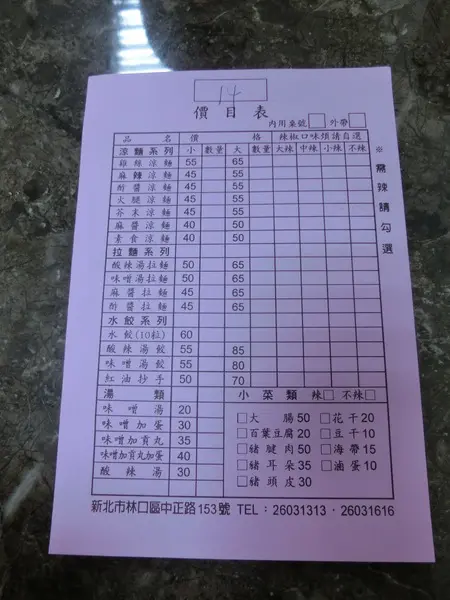 14
價目表
內用桌號 外帶
品名 價格 辣椒口味煩請自選
涼麵系列 小 數量 大 數量 大辣 中辣 小辣 不辣
雞絲涼麵 55 65
麻辣涼麵 45 55
酢醬涼麵 45 55
火腿涼麵 45 55
芥末涼麵 45 55
麻醬涼麵 40 50
素食涼麵 40 50
拉麵系列
酸辣湯拉麵 50 65
味噌湯拉麵 50 65
麻醬拉麵 45 65
酢醬拉麵 45 65
水餃系列
水餃(10粒) 60
酸辣湯餃 55 85
味噌湯餃 55 80
紅油抄手 50 70
※需辣請勾選
湯類
味噌湯 20
味噌加蛋 30
味噌加貢丸 35
味噌加貢丸加蛋 40
酸辣湯 30
小菜類 辣□ 不辣□
□大腸50 □花干20
□百葉豆腐20 □豆干10
□豬腱肉50 □海帶15
□豬耳朵35 □滷蛋10
□豬頭皮30
新北市林口區中正路153號 TEL：26031313．26031616